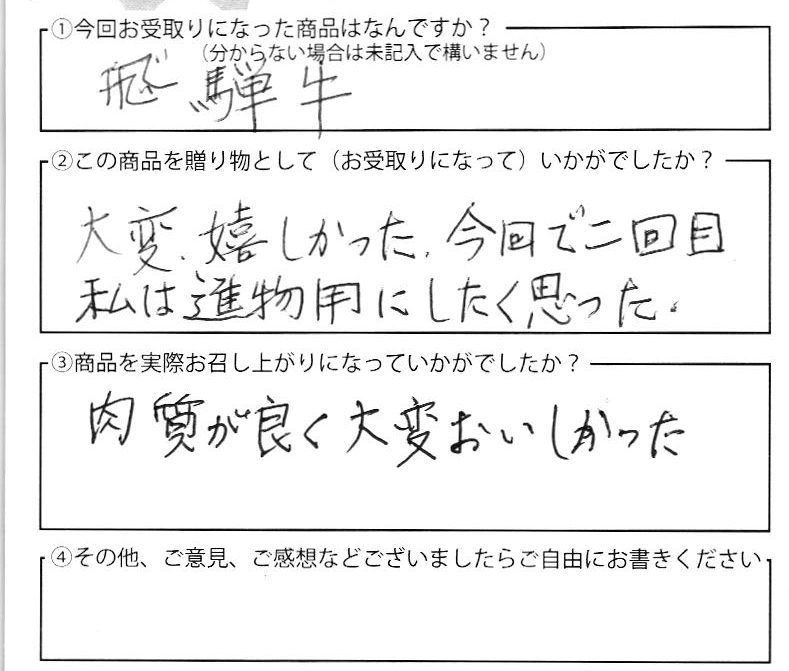 ①今回お受取りになった商品はなんですか？
（分からない場合は未記入で構いません）
飛騨牛
②この商品を贈り物として（お受取りになって）いかがでしたか？
大変、嬉しかった、今回で二回目
私は進物用にしたく思った。
③商品を実際お召し上がりになっていかがでしたか？
肉質が良く大変おいしかった
④その他、ご意見、ご感想などございましたらご自由にお書きください